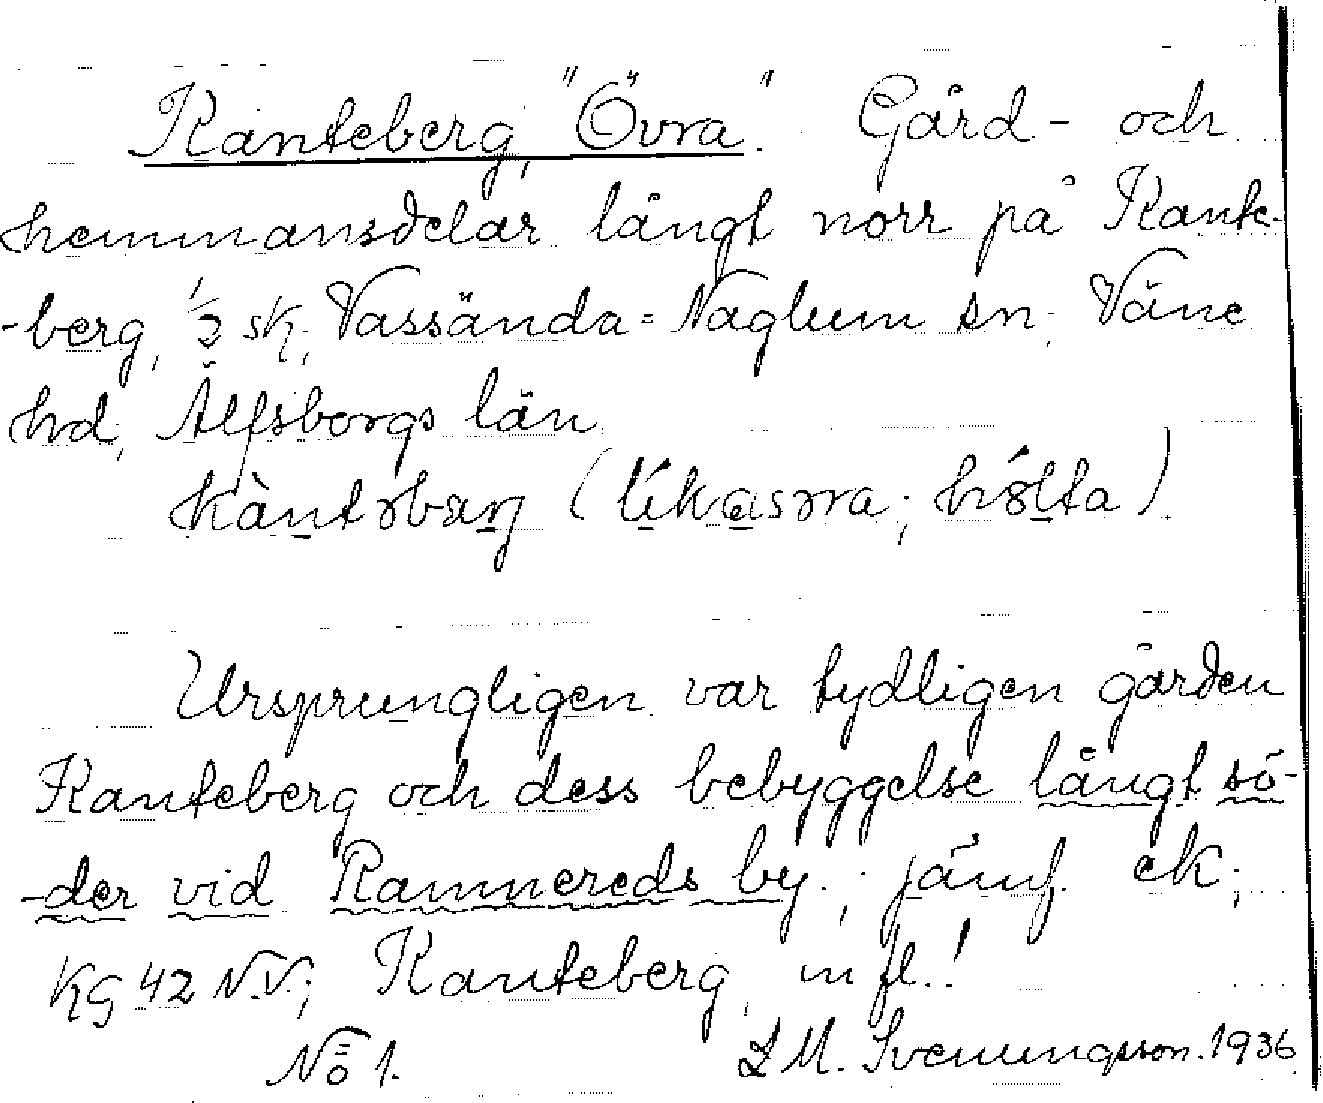 Kanteberg, "Övra". Gård- och
hemmansdelar långt norr på Kante-
-berg, 1/2 sk, Vassända-Naglum sn. Väne
hd, Älfsborgs län
(
Ursprungligen var tydligen gården
Kanteberg och dess bebyggelse långt sö-
-der vid Rannereds by; jämf. ek;
KG 42 N.V.; Kanteberg, m fl.!
No 1. L M. Svenungsson. 1936